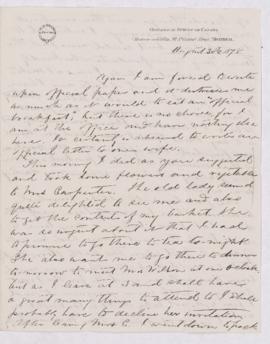 Geological Survey of Canada,
Montreal,
August 30th 1878
Again I am forced to write
upon official paper and it distresses me
as much as it would to eat an official
breakfast, but there is no choice for I
am at the office and have nothing else
here. It certainly is absurd to write an
official letter to one's wife.
This morning I did as you suggested
and took some flowers and vegetables
to Mrs Carpenter. The old lady seemed
quite delighted to see me and also
to get the contents of my basket. She
was so urgent about it that I had
to promise to go there to tea to-night.
She also wants me to go there to dinner
to-morrow to meet Mrs at one o'clock
but as I leave at 3 and shall have
a great many things to attend to I shall
probably have to decline her invitation.
After seeing Mrs C. I went down to pack